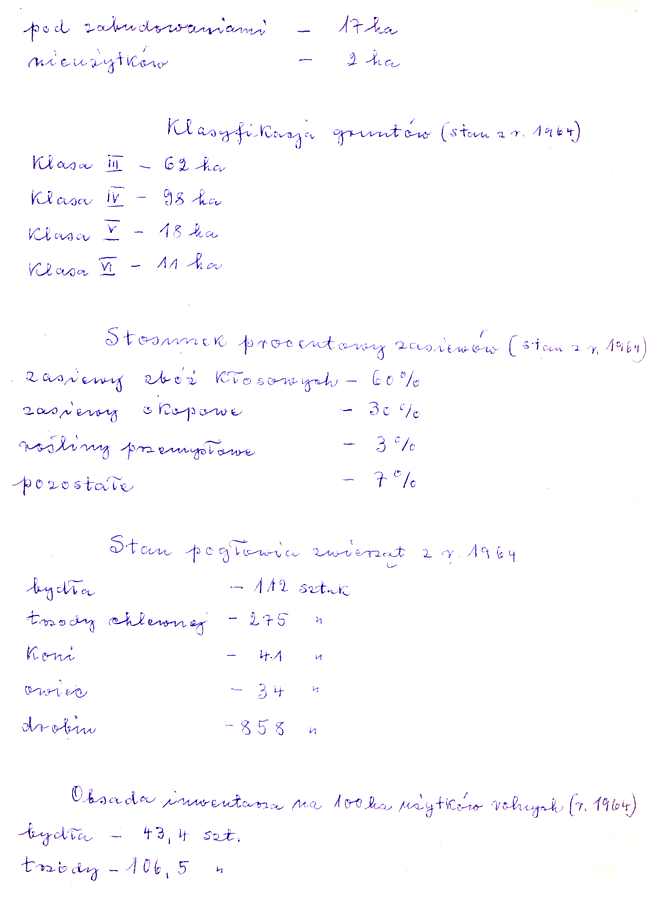 pod zabudowaniami – 17 ha
nieużytków – 2 ha
Klasyfikasja gruntów (stan z r. 1964)
Klasa III – 62 ha
Klasa IV – 98 ha
Klasa V – 18 ha
Klasa VI – 11 ha
Stosunek procentowy zasiewów (stan z r. 1964)
zasiewy zbóż kłosowych – 60 %
zasiewy okopowe – 30 %
rośliny przemysłowe – 3 %
pozostałe – 7 %
Stan pogłowia zwierząt z r. 1964
bydła – 112 sztuk
trzody chlewnej – 275 "
koni – 41 "
owiec – 34 "
drobiu – 858 "
Obsada inwentarza na 100 ha użytków rolnych (r. 1964)
bydła – 43,4 szt.
trzody – 106,5 "